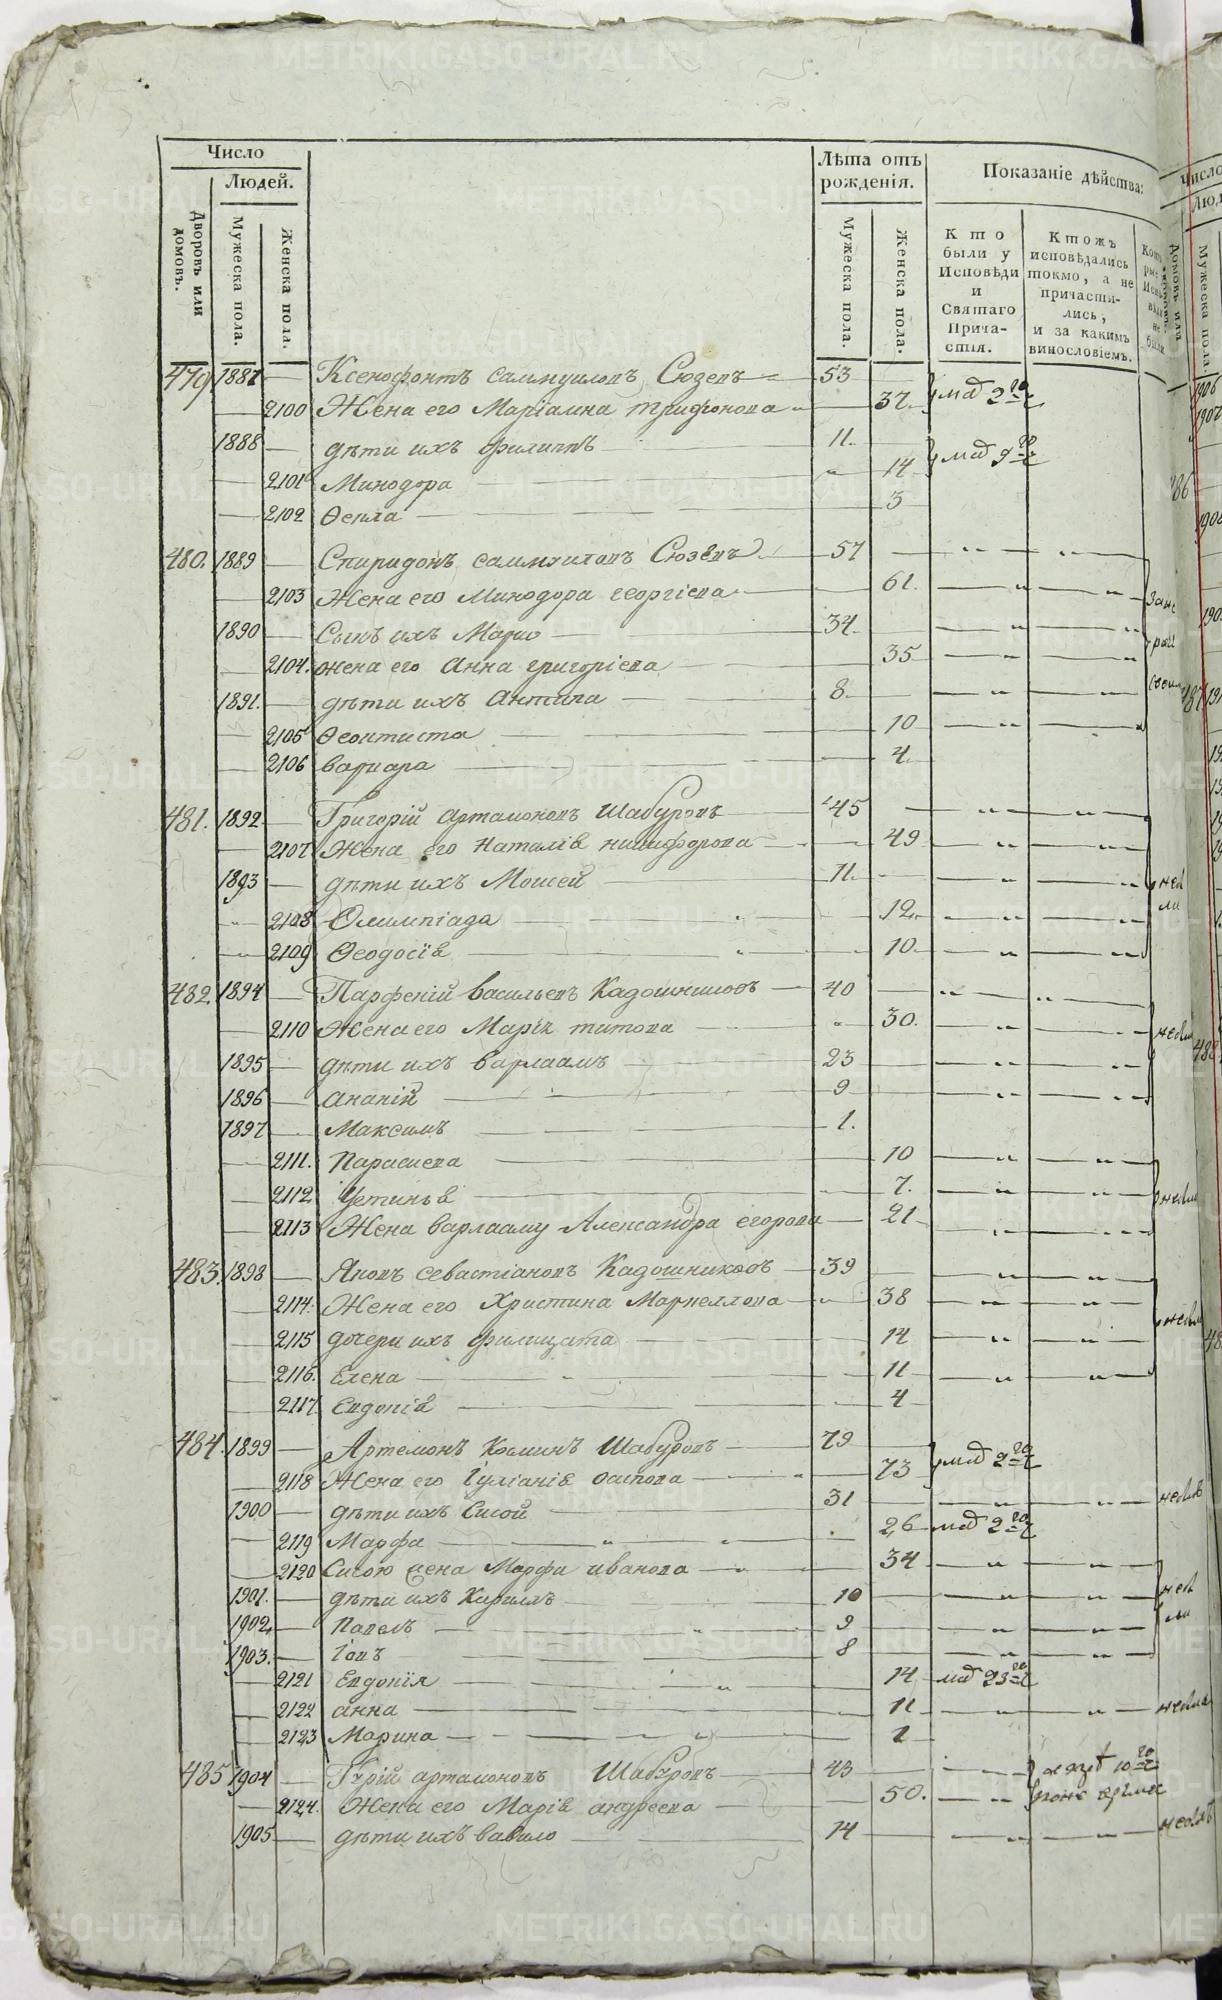 Число
Людей.
Дворовъ или домовъ.
Мужеска пола.
Женска пола.
Лѣта отъ рожденія.
Мужеска пола.
Женска пола.
Показаніе дѣйства:
Кто были у Исповѣди и Святаго Причастія.
Ктожъ исповѣдались токмо, а не причастились, и за какимъ винословіемъ.
479. 1887 — Ксенофонтъ саммуиловъ Сюзевъ — 53
2100 Жена его Маріамна трифонова — 37
1888 — дѣти ихъ филиппъ 11.
2101 Минодора — 14
2102 Ѳекла — 3
480. 1889 — Спиридонъ саммуиловъ Сюзевъ — 57
2103 Жена его Минодора георгіева — 61.
1890 — Сынъ ихъ Марко — 34.
2104. жена его Анна григоріева — 35
1891. — дѣти ихъ Антипа — 8
2105 Ѳеоктиста — 10
2106 варвара — 4.
481. 1892 — Григорій артамоновъ Шабуровъ 45
2107 Жена его Наталія никифорова — 49
1893 — дѣти ихъ Моисей — 11.
2108 Олимпіада — 12.
2109 Ѳеодосія — 10
482. 1894 — Парфеній васильевъ Кадошниковъ — 40
2110 Жена его Марія титова — 30.
1895 — дѣти ихъ варлаамъ — 23
1896 — ананій — 9
1897 — Максимъ — 1.
2111. Параскева — 10
2112 Устинья — 7.
2113 Жена варлааму Александра егорова — 21
483. 1898 — Яковъ севастіановъ Кадошниковъ — 39
2114. Жена его Христина Маркеллова — 38
2115 дочери ихъ филицата — 14
2116. Елена — 11
2117 Евдокія — 4
484. 1899 — Артемонъ Косминъ Шабуровъ — 79
2118 Жена его Іуліанія осипова — 73
1900 — дѣти ихъ Сисой — 31
2119 Марфа — 26
2120 Сисою жена Марфа иванова — 34
1901. — дѣти ихъ Кирилъ 10
1902. — Павелъ — 9
1903. — Іовъ — 8
2121 Евдокія — 14
2122 анна — 11
2123 Марина — 1
485 1904 — Гурій артамоновъ Шабуровъ — 43
2124. Жена его Марія андреева — 50.
1905 — дѣти ихъ вавило — 14
METRIKI.GASO-URAL.RU